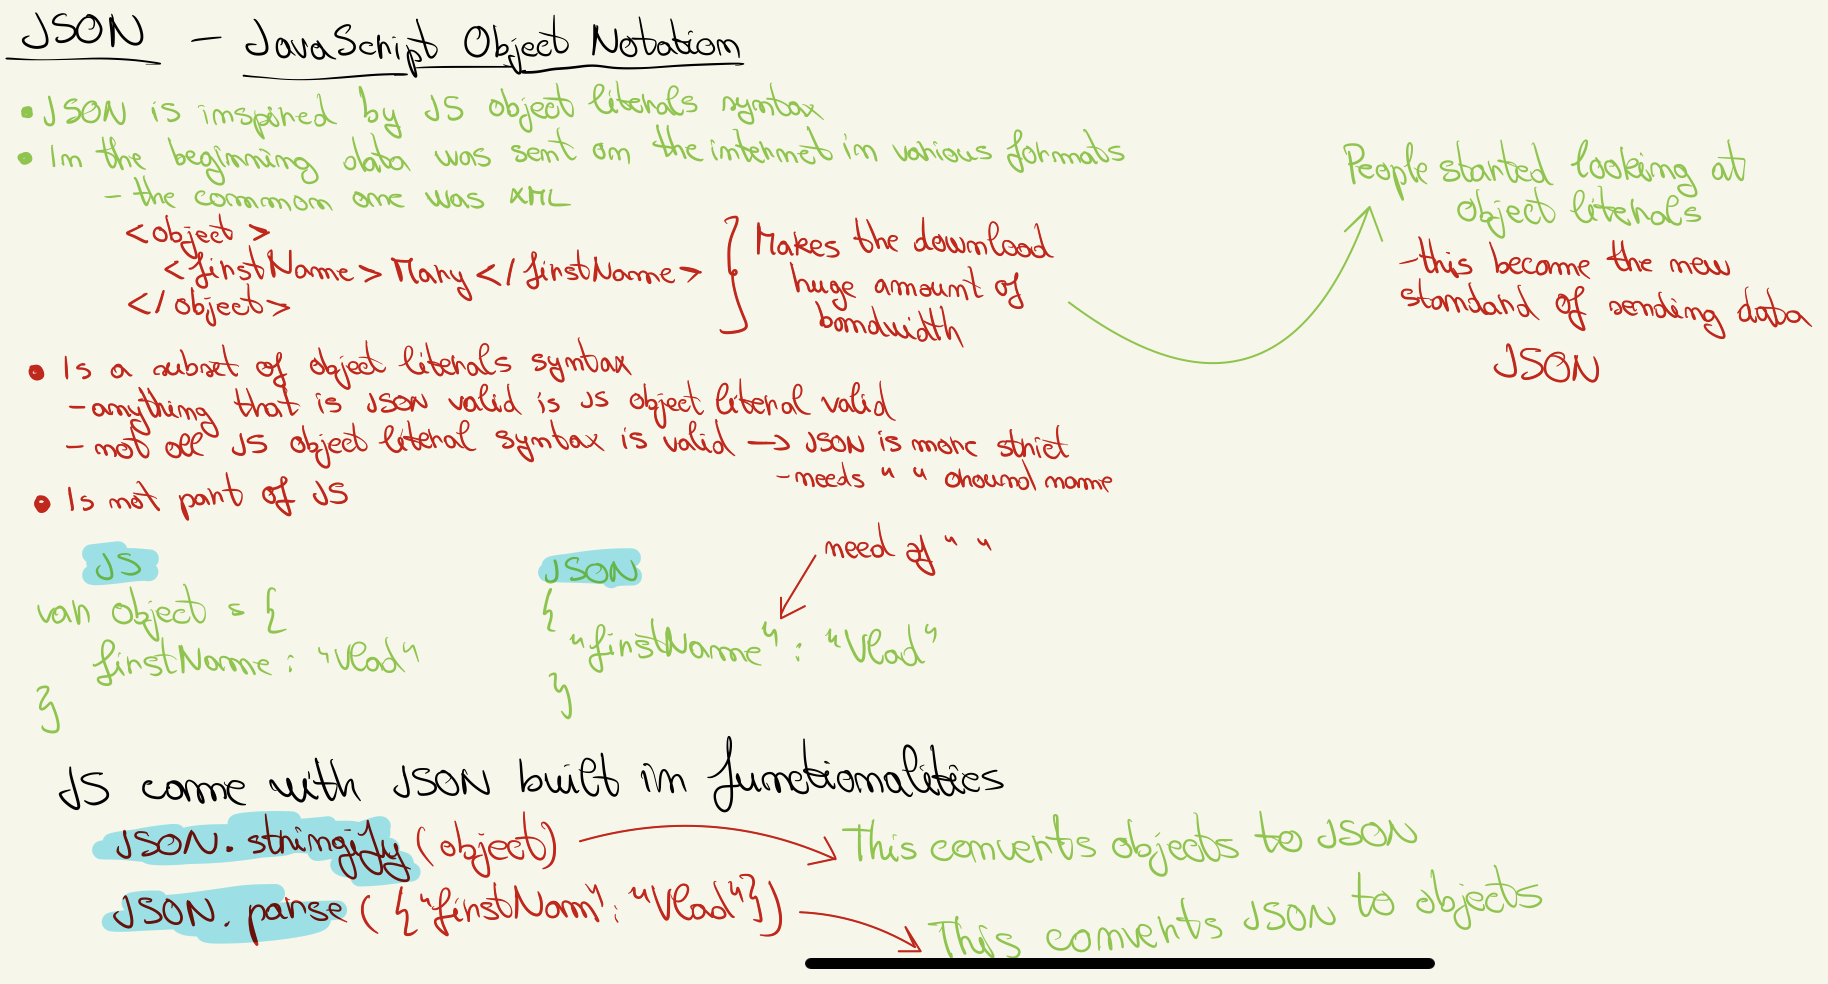 JSON - JavaScript Object Notation
• JSON is inspired by JS object literals syntax
• In the beginning data was sent on the internet in various formats
- the common one was XML
<object>
<firstName> Mary </firstName>
</object>
} Makes the download
huge amount of
bandwidth
People started looking at
object literals
- this become the new
standard of sending data
JSON
• Is a subset of object literals syntax
- anything that is JSON valid is JS object literal valid
- not all JS object literal syntax is valid → JSON is more strict
- needs " " around name
• Is not part of JS
JS
var object = {
firstName : "Vlad"
}
JSON
need of " "
{
"firstName" : "Vlad"
}
JS came with JSON built in functionalities
JSON.stringify (object) → This converts objects to JSON
JSON.parse ( { "firstNam" : "Vlad" } ) → This converts JSON to objects